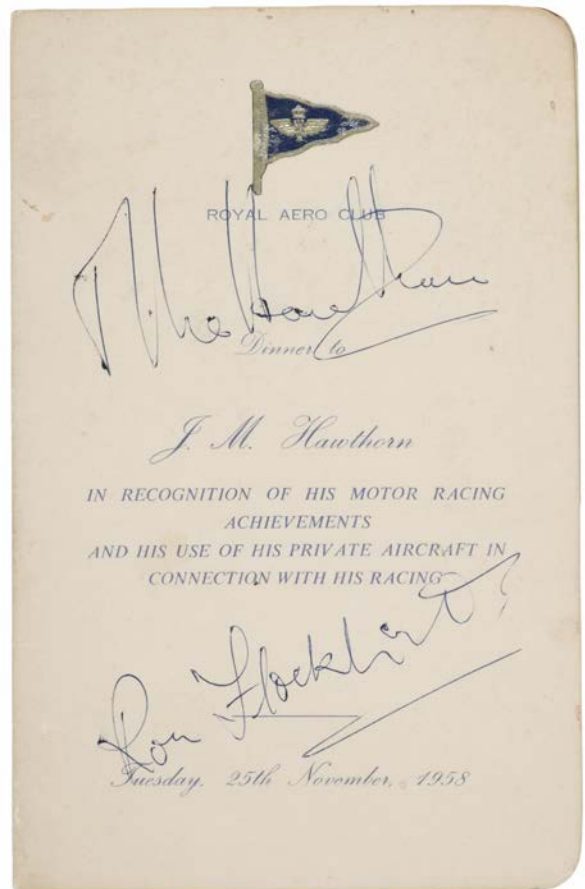 ROYAL AERO CLUB
Mike Hawthorn
Dinner to
J. M. Hawthorn
IN RECOGNITION OF HIS MOTOR RACING
ACHIEVEMENTS
AND HIS USE OF HIS PRIVATE AIRCRAFT IN
CONNECTION WITH HIS RACING
Ron Flockhart
Tuesday, 25th November, 1958